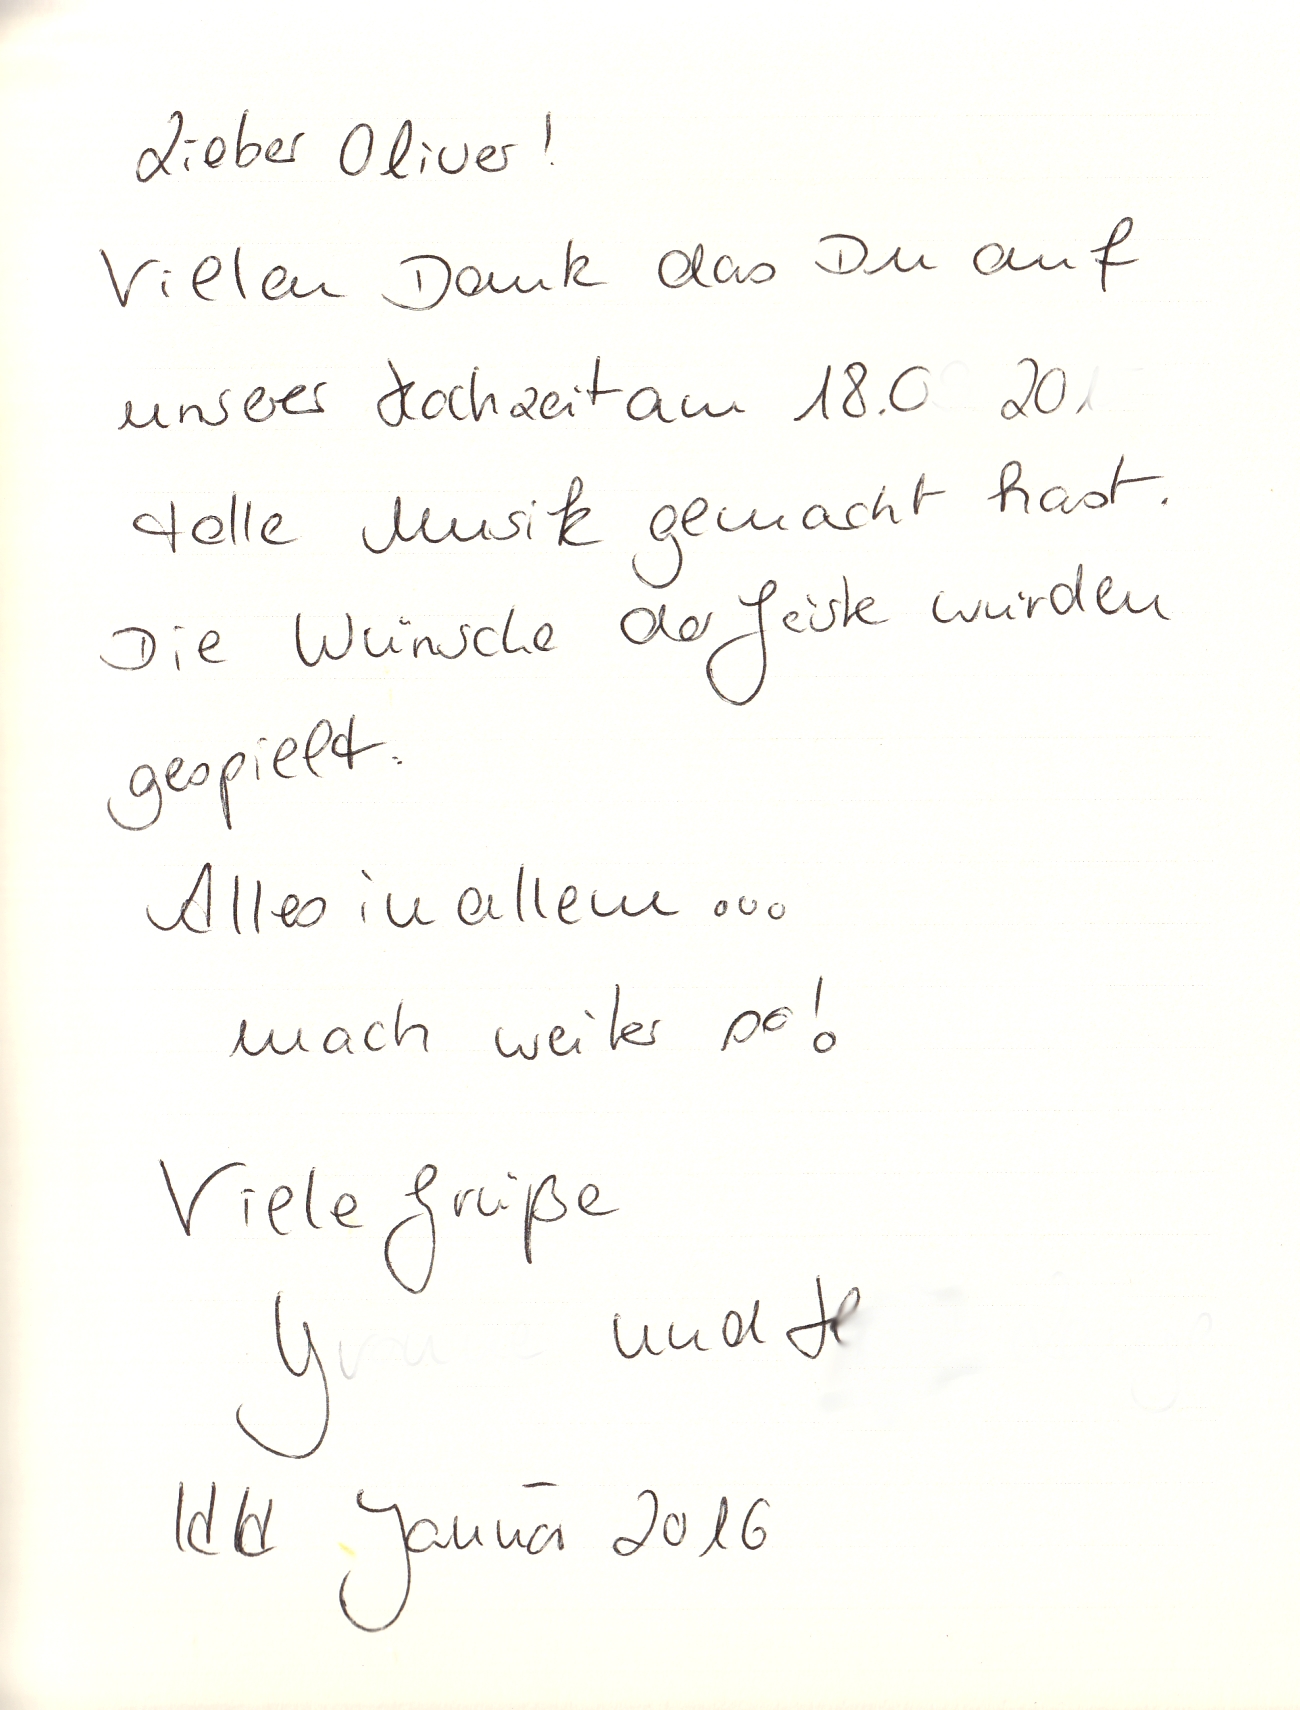 Lieber Oliver!
Vielen Dank das Du auf
unserer Hochzeit am 18.0 20
tolle Musik gemacht hast.
Die Wünsche der Gäste wurden
gespielt.
Alles in allem ...
mach weiter so!
Viele Grüße
und
Januar 2016